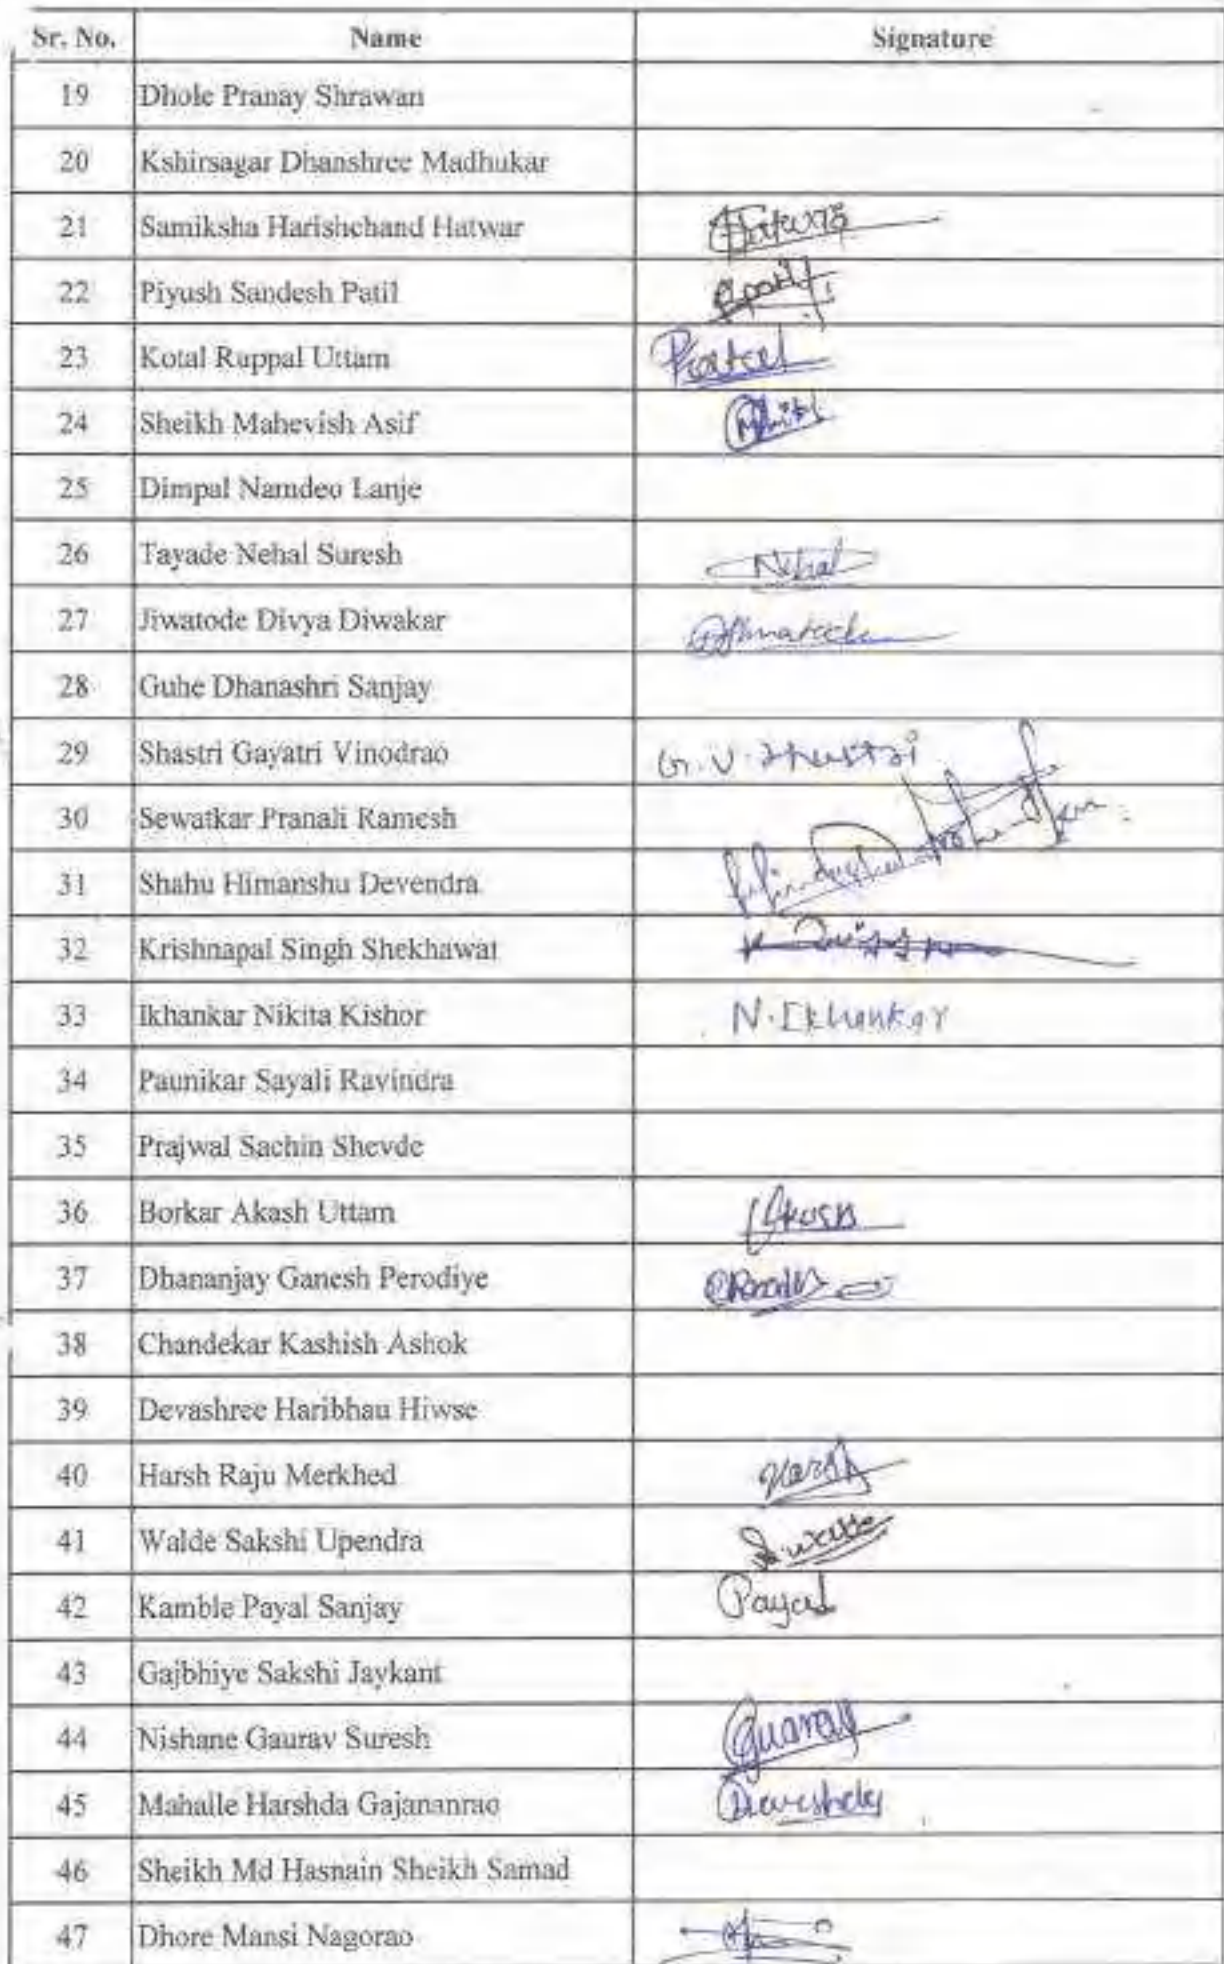 Sr. No. Name Signature
19 Dhole Pranay Shrawan
20 Kshirsagar Dhanshree Madhukar
21 Samiksha Harishchand Hatwar
22 Piyush Sandesh Patil
23 Kotal Ruppal Uttam
24 Sheikh Mahevish Asif
25 Dimpal Namdeo Lanje
26 Tayade Nehal Suresh Nehal
27 Jiwatode Divya Diwakar
28 Guhe Dhanashri Sanjay
29 Shastri Gayatri Vinodrao G.V.
30 Sewatkar Pranali Ramesh
31 Shahu Himanshu Devendra
32 Krishnapal Singh Shekhawat
33 Ikhankar Nikita Kishor N.Ikhankar
34 Paunikar Sayali Ravindra
35 Prajwal Sachin Shevde
36 Borkar Akash Uttam Akash
37 Dhananjay Ganesh Perodiye
38 Chandekar Kashish Ashok
39 Devashree Haribhau Hiwse
40 Harsh Raju Merkhed Harsh
41 Walde Sakshi Upendra
42 Kamble Payal Sanjay Payal
43 Gajbhiye Sakshi Jaykant
44 Nishane Gaurav Suresh
45 Mahalle Harshda Gajananrao
46 Sheikh Md Hasnain Sheikh Samad
47 Dhore Mansi Nagorao